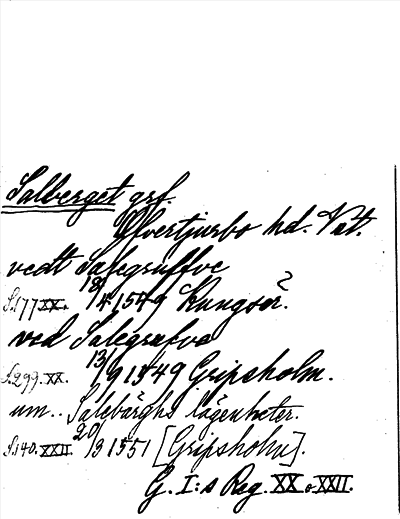 Salberget grf.
Övertjurbo hd. Vst.
vedt Salegruffve
S.177 XX. 18/4 1549 Kungsör.
ved Salegrufva
S.299. XX. 13/9 1549 Gripsholm.
um.. Salebärghs lägenheter.
S.140. XXII. 20/3 1551 [Gripsholm].
G. I:s Reg. XX o. XXII.